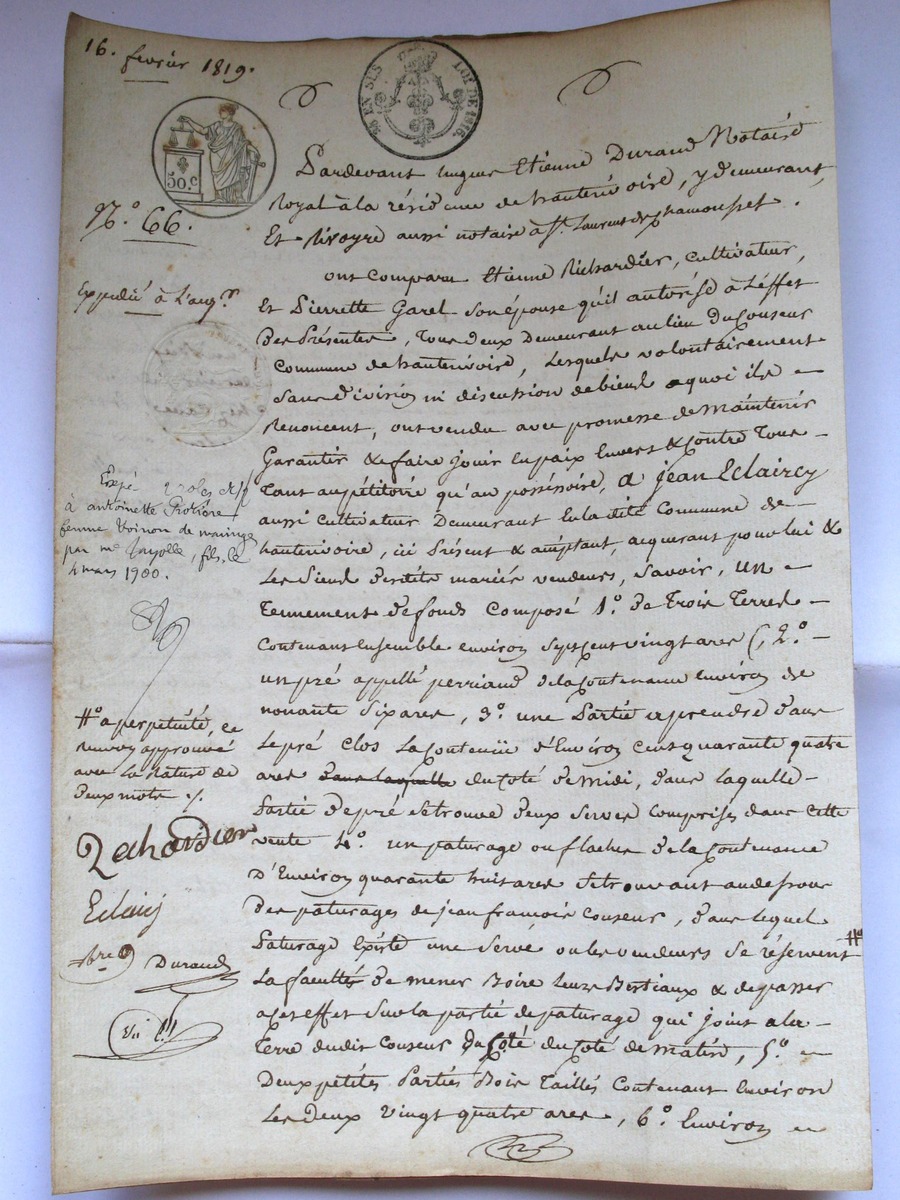 16. fevrier 1819.
EN SUS
LOI DE 1816.
50 c
N.o 66.
Expedié à L'aq.r
Pardevant Etienne Durand Notaire
Royal à la résidence de hauterivoire, y demeurant,
Et Rivoyre aussi notaire à St. Laurent de chamousset.
ont comparu Etienne Richardier, cultivateur,
Et Pierrette Garel son épouse qu'il autorise à L'effet
Des Présentes, Tous deux Demeurant au lieu du Couseur
Commune de hauterivoire, Lesquels volontairement
Sans division ni discussion de biens aquoi ils
Renoncent, ont vendu avec promesse de maintenir
Garantir & faire jouir en paix Envers & Contre Tous
Tant au pétitoire qu'au possessoire, a jean Eclaircy
aussi cultivateur Demeurant En la dite Commune de
hauterivoire, ici Présent & acceptant, acquerant pour lui &
Les Siens Desdits mariés vendeurs, Savoir, un
Tennement de fonds Composé 1.o de Trois Terres
Contenant Ensemble environ Sept cent vingt ares, 2.o
un pré appellé perriaud de la Contenance environ de
nonante Six ares, 3.o une Partie a prendre dans
Le pré Clos La Contenüe d'Environ Cent quarante quatre
ares dans laquelle du Coté de midi, dans laquelle
Partie de pré Se trouve deux Serves Comprises dans Cette
vente 4.o un paturage ou flaches de la Contenance
D'Environ quarante huit ares Se trouvant au dessous
Des paturages de jean françois Couseur, dans lequel
Paturage Existe une Serve, ou les vendeurs Se réservent #o
La faculté de mener Boire Leurs Bestiaux & de passer
a cet effet Sur la partie de paturage qui joint a la
Terre dudit Couseur du Coté du Coté de matin, 5.o
Deux petites Parties Bois Taillés Contenant Environ
Les Deux vingt quatre ares, 6.o Environ
2 roles
à antoinette
femme Voinon de
par me Jayolle, fils, le
4 mars 1900.
#o a perpétuité, ce
renvoy approuvé
avec La Rature de
Deux mots ./.
Richardier
Eclaircy
Durand